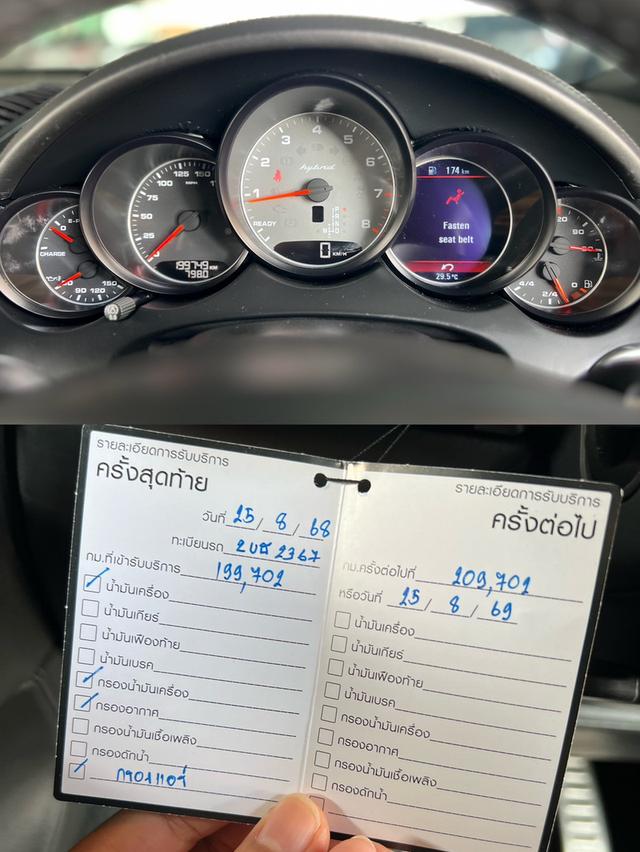 4
3
5
2
6
1
7
8
hybrid
READY
0 KM/H
125 150
100
MPH
75
50
25
0
199749 KM
7980
174 km
Fasten
seat belt
29.5 °C
CHARGE
E-P
0
90 120 150
20
4/4
2/4
0
รายละเอียดการรับบริการ
ครั้งสุดท้าย
วันที่ 25 / 8 / 68
ทะเบียนรถ 2367
กม.ที่เข้ารับบริการ 199,702
น้ำมันเครื่อง
น้ำมันเกียร์
น้ำมันเฟืองท้าย
น้ำมันเบรค
กรองน้ำมันเครื่อง
กรองอากาศ
กรองน้ำมันเชื้อเพลิง
กรองดักน้ำ
กรองแอร์
รายละเอียดการรับบริการ
ครั้งต่อไป
กม.ครั้งต่อไปที่ 209,702
หรือวันที่ 25 / 8 / 69
น้ำมันเครื่อง
น้ำมันเกียร์
น้ำมันเฟืองท้าย
น้ำมันเบรค
กรองน้ำมันเครื่อง
กรองอากาศ
กรองน้ำมันเชื้อเพลิง
กรองดักน้ำ